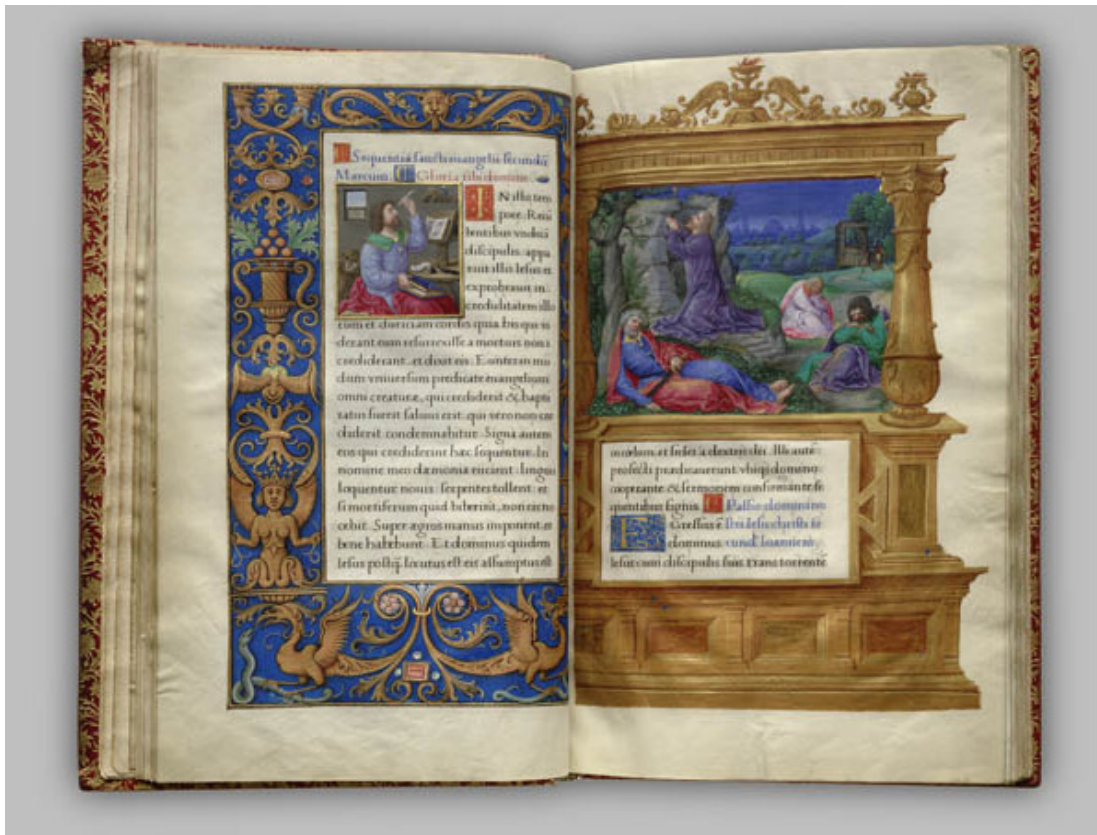 Sequentia sancti euangelii secundū
Marcum. Gloria tibi domine.
IN illo tem
pore. Recū
bentibus vndecī
discipulis appa
ruit illis Iesus et
exprobrauit in
credulitatem illo
rum et duriciam cordis quia his qui vi
derant eum resurrexisse a mortuis non
crediderant. et dixit eis. Euntes in mū
dum vniuersum predicate euangelium
omni creaturæ, qui crediderit & bapti
zatus fuerit saluus erit. qui vero non cre
diderit condemnabitur. Signa autem
eos qui crediderint hæc sequentur. In
nomine meo dæmonia eiicient. linguis
loquentur nouis. serpentes tollent. et
si mortiferum quid biberint, non eis no
cebit. Super ægros manus imponent et
bene habebunt. Et dominus quidem
Iesus postq̄ locutus est eis assumptus est
in cœlum. et sedet a dextris dei. Illi autē
profecti prædicauerunt vbiq̄ domino
cooperante & sermonem confirmante se
quentibus signis. Passio domini no
EGressus ē stri Iesu christi se
dominus cund. Ioannem.
Iesus cum discipulis suis trans torrentē